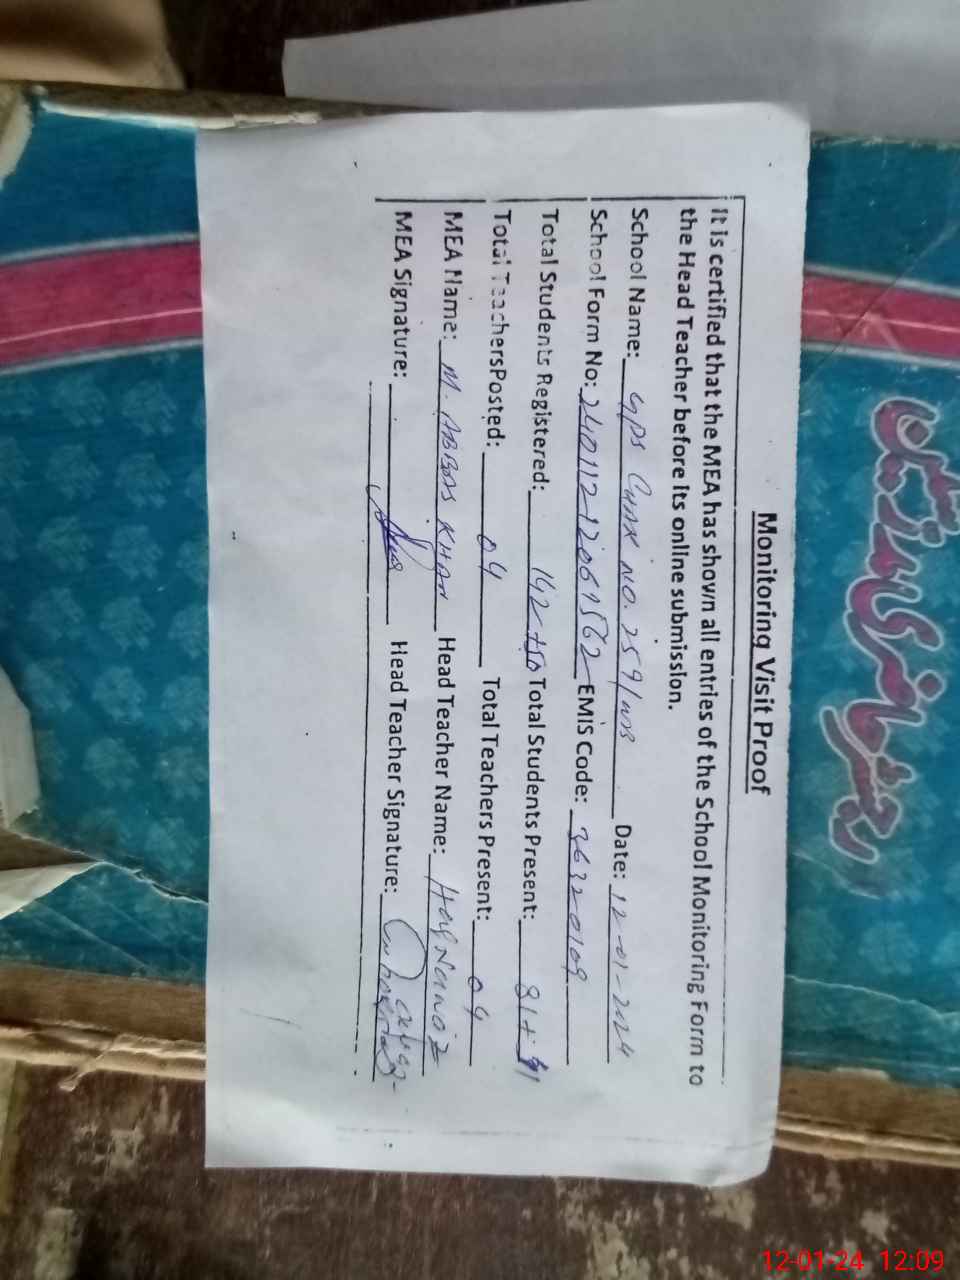 رجسٹر حاضری
Monitoring Visit Proof
It is certified that the MEA has shown all entries of the School Monitoring Form to
the Head Teacher before its online submission.
School Name: GPS Chak No. 259/WB Date: 12-01-2024
School Form No: EMIS Code: 36320109
Total Students Registered: 142+50 Total Students Present: 81+
Total TeachersPosted: 04 Total Teachers Present: 04
MEA Name: M. ABBAS KHAN Head Teacher Name:
MEA Signature: Head Teacher Signature:
12-01-24 12:09